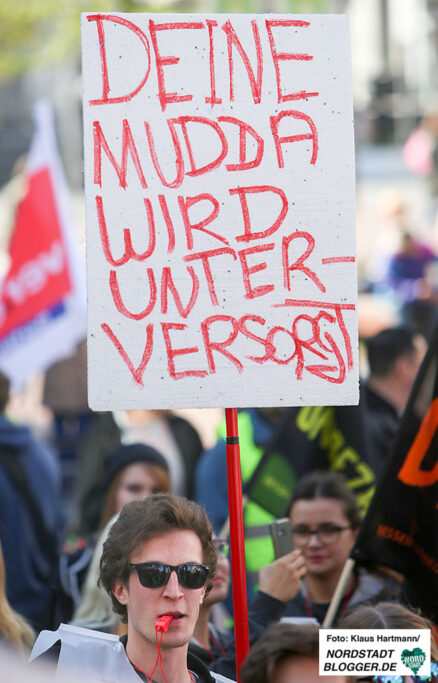 DEINE
MUDDA
WIRD
UNTER-
VERSORGT
ver
Foto: Klaus Hartmann
NORDSTADT
BLOGGER.DE